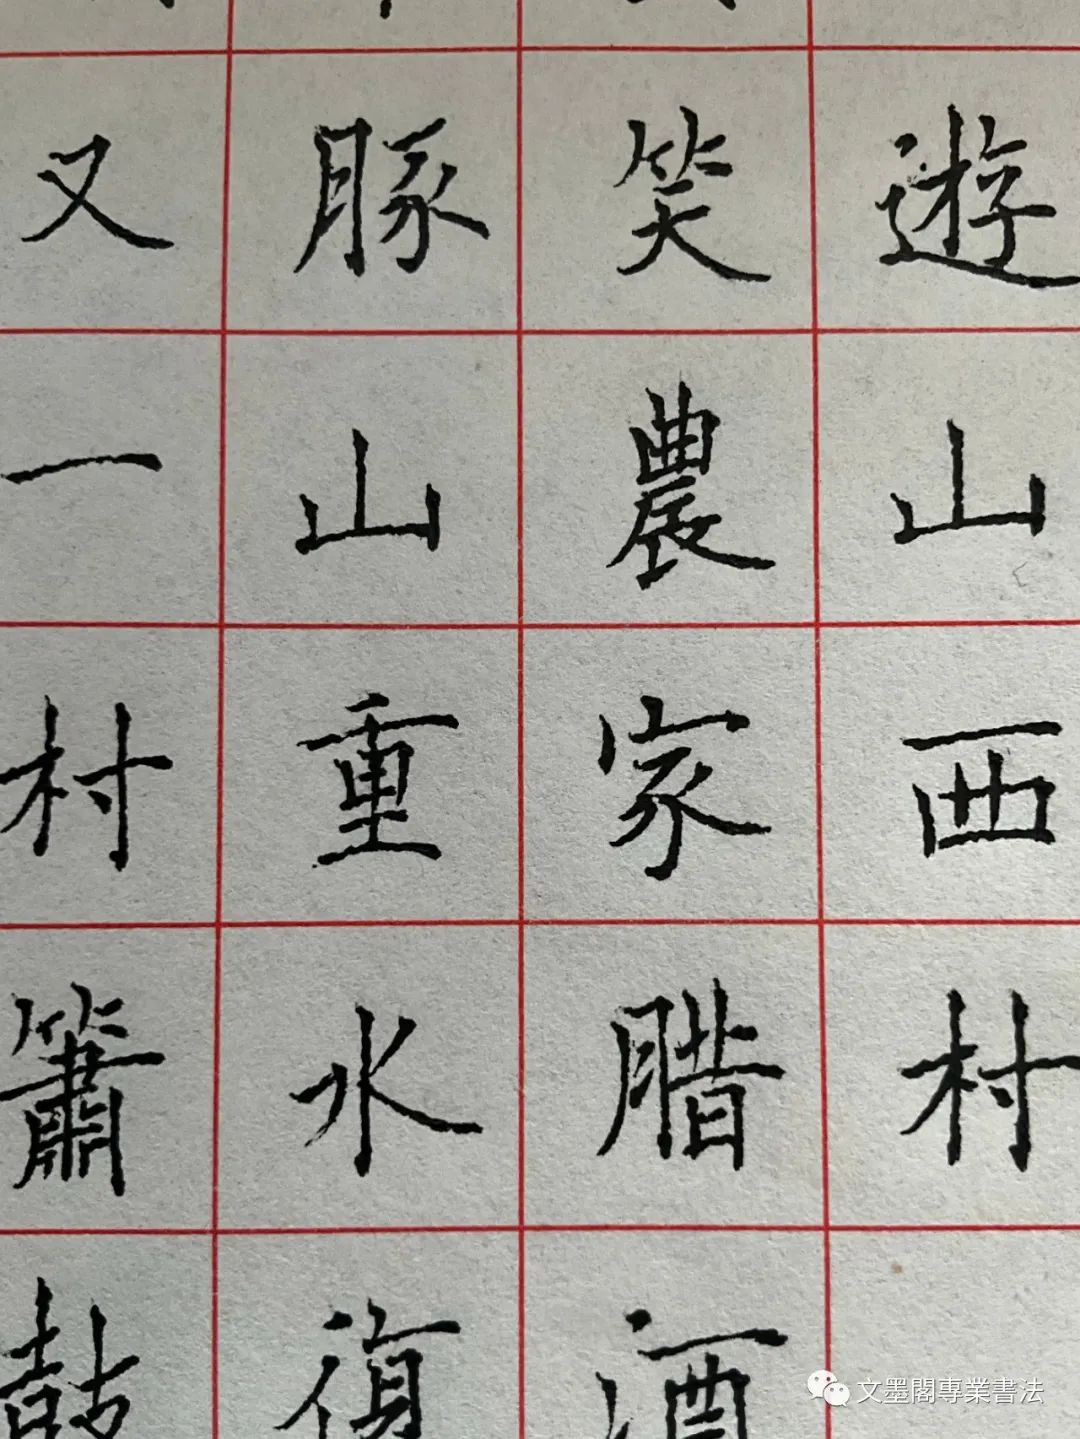 遊山西村
笑農家腊酒
豚山重水復
又一村簫鼓
文墨閣專業書法